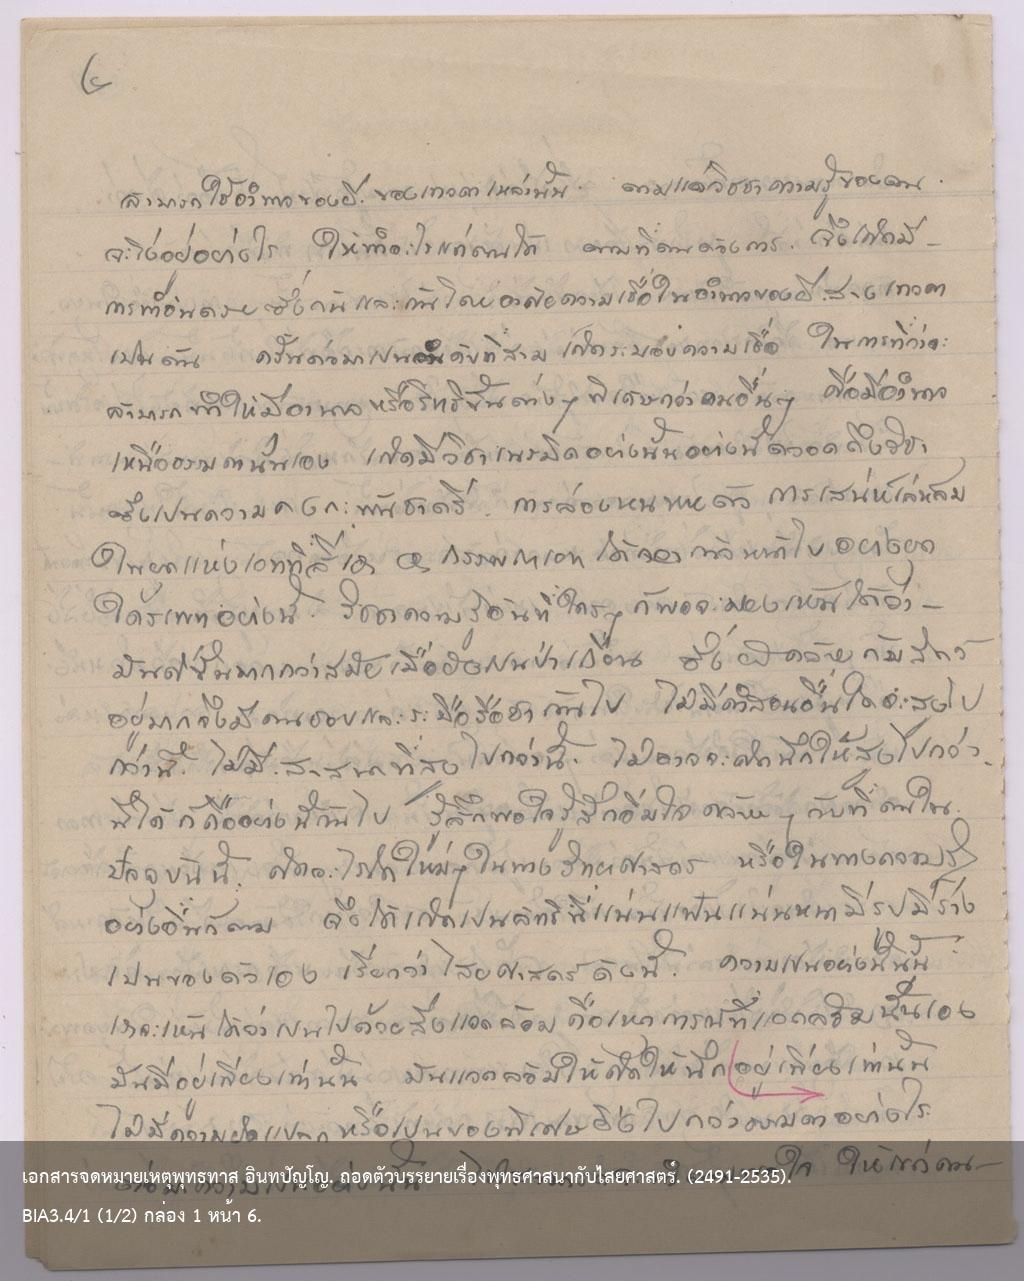 ๖
สามารถใช้อำนาจของผี. ของเทวดาเหล่านั้น. ตามแต่วิชชาความรู้ของตน.
จะมีอยู่อย่างไร ให้ทำอะไรแก่ตนได้ ตามที่ตนต้องการ. จึงเกิดมี–
การทำอันตรายซึ่งกันและกันโดยอาศัยความเชื่อในอำนาจของผี.สาง เทวดา
เป็นต้น ครั้นต่อมาเป็นอันดับที่สาม เกิดระบบความเชื่อ ในการที่ว่าจะ
สามารถ ทำให้มีอำนาจ หรือฤทธิ์ขึ้นต่างๆ พิเศษกว่าคนอื่นๆ คือมีอำนาจ
เหนือธรรมดานั่นเอง เกิดมีวิชาเนรมิตอย่างนั้นอย่างนี้ตลอดถึงวิชา
ซึ่งเป็นความคงกะพันชาตรี. การล่องหนหายตัว การเสน่ห์เล่ห์กล
ในยุคแห่ง ได้ก้าวหน้าไป อย่างยุค
อย่างนี้. วิชาความรู้อันที่ใครๆ ก็พอจะมองเห็นได้ว่า–
มันดีขึ้นมากกว่าสมัยเมื่อยังเป็นป่าเถื่อน ซึ่ง คล้ายกับสัตว์
อยู่มากจึงมีคนชอบและระบือลือชากันไป ไม่มีคำสอนอื่นใดจะสูงไป
กว่านี้. ไม่มี.ศาสนาที่สูงไปกว่านี้. ไม่อาจจะคิดนึกให้สูงไปกว่า–
นี้ได้ ก็ถืออย่างนี้กันไป รู้สึกพอใจรู้สึกอิ่มใจ คล้ายๆ กับที่คนใน
ปัจจุบันนี้. คิดอะไรได้ใหม่ๆในทางวิทยาศาสตร์ หรือในทางความรู้
อย่างอื่นก็ตาม จึงได้เกิดเป็นลัทธินี้แน่นแฟ้นแน่นหนามีรูปมีร่าง
เป็นของตัวเอง เรียกว่าไสยศาสตร์ ดังนี้. ความเป็นอย่างนี้นั้น
เราจะเห็นได้ว่าเป็นไปด้วยสิ่งแวดล้อม คือเหตุการณ์ที่แวดล้อมนั่นเอง
มันมีอยู่เพียงเท่านั้น มันแวดล้อมให้คิดให้นึกอยู่เพียงเท่านั้น
ไม่มีความผิดแปลกหรือเป็นของพิเศษยิ่งไปกว่าธรรมดาอย่างไร
ให้แก่คน–
เอกสารจดหมายเหตุพุทธทาส อินทปัญโญ. ถอดตัวบรรยายเรื่องพุทธศาสนากับไสยศาสตร์. (2491-2535).
BIA3.4/1 (1/2) กล่อง 1 หน้า 6.